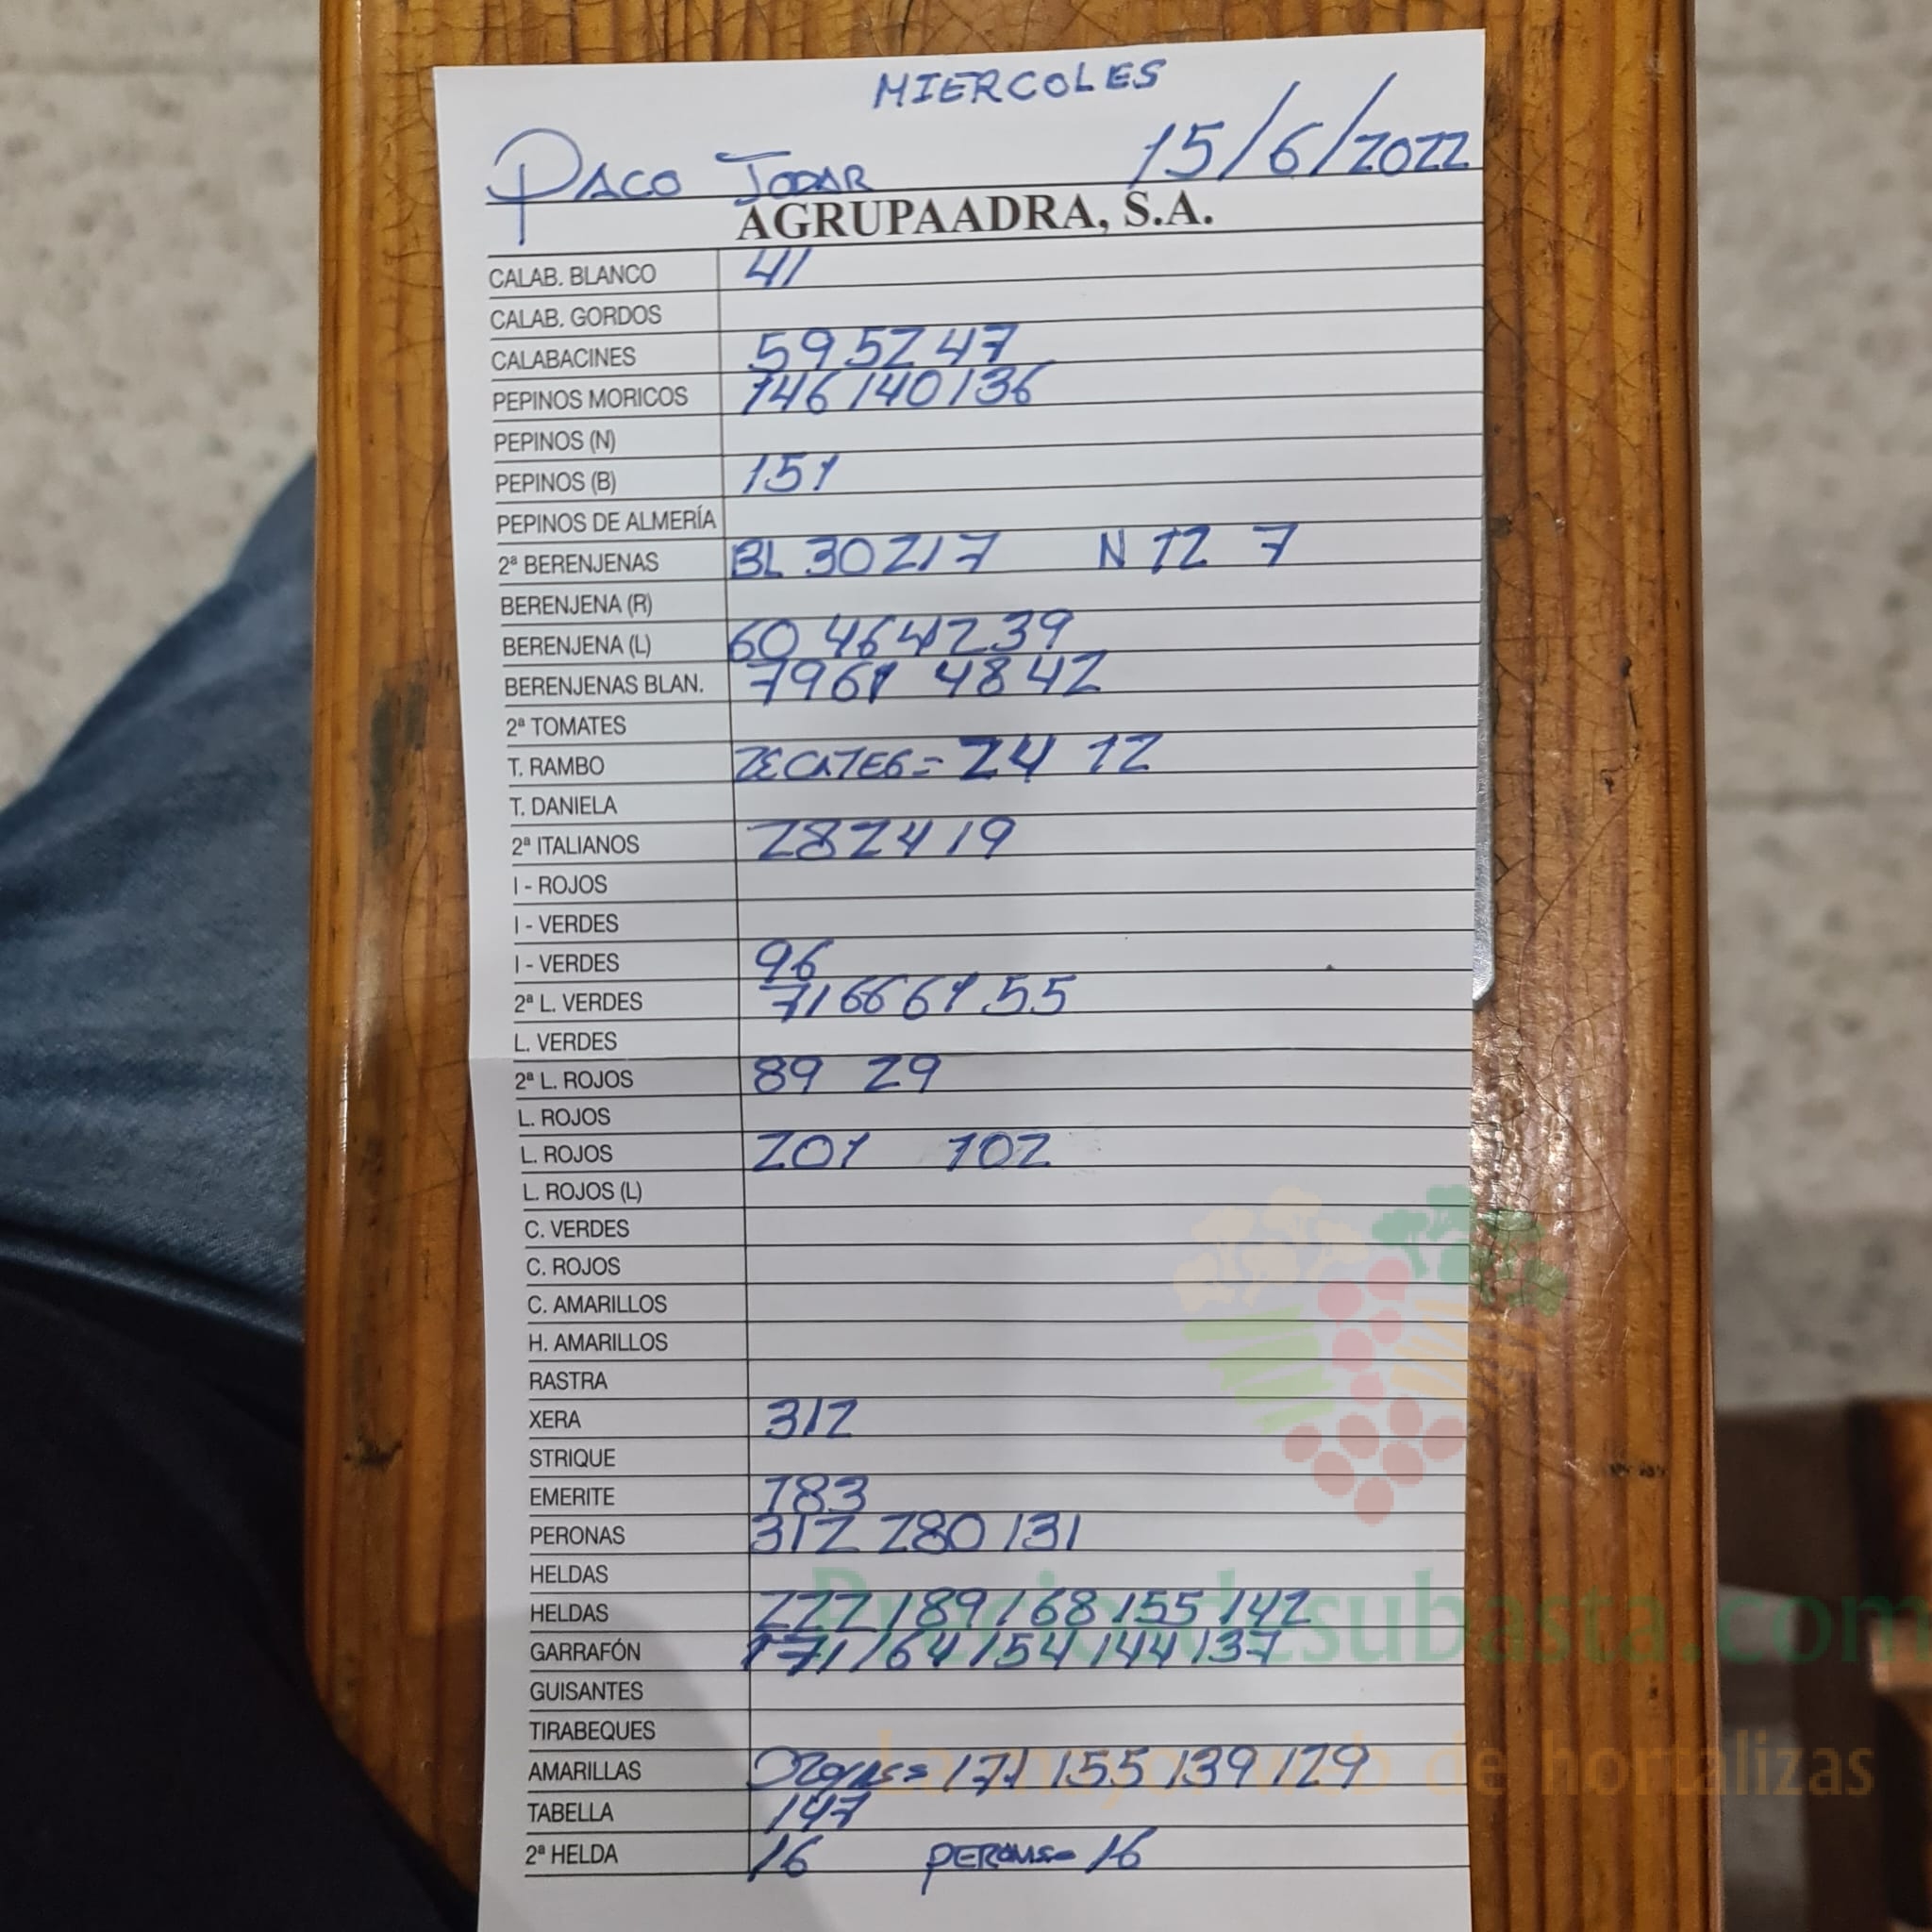 MIERCOLES
PACO JODAR 15/6/2022
AGRUPAADRA, S.A.
CALAB. BLANCO 41
CALAB. GORDOS
CALABACINES 59 52 47
PEPINOS MORICOS 146 140 136
PEPINOS (N)
PEPINOS (B) 151
PEPINOS DE ALMERÍA
2ª BERENJENAS BL 30 21 7 N 12 7
BERENJENA (R)
BERENJENA (L) 60 46 42 39
BERENJENAS BLAN. 79 61 48 42
2ª TOMATES
T. RAMBO 24 12
T. DANIELA
2ª ITALIANOS 28 24 19
I - ROJOS
I - VERDES
I - VERDES 96
2ª L. VERDES 71 66 61 55
L. VERDES
2ª L. ROJOS 89 29
L. ROJOS
L. ROJOS 201 102
L. ROJOS (L)
C. VERDES
C. ROJOS
C. AMARILLOS
H. AMARILLOS
RASTRA
XERA 312
STRIQUE
EMERITE 183
PERONAS 312 280 131
HELDAS
HELDAS 222 189 168 155 142
GARRAFÓN 171 164 154 144 137
GUISANTES
TIRABEQUES
AMARILLAS 171 155 139 129
TABELLA 147
2ª HELDA 16 PERONAS= 16
Preciodesubasta.com
La mayor web de hortalizas